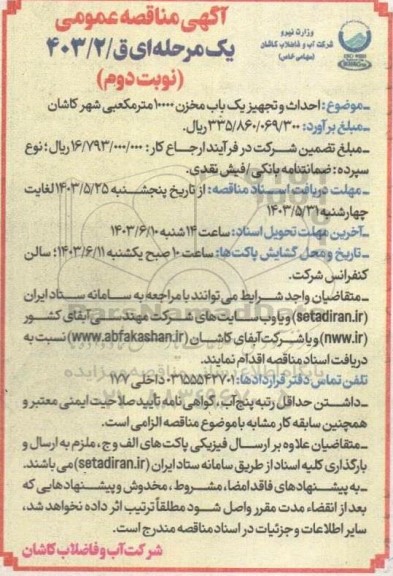 وزارت نیرو
شرکت آب و فاضلاب کاشان
(سهامی خاص)
آگهی مناقصه عمومی
یک مرحله‌ای ق/۴۰۳/۲
(نوبت دوم)
ـ موضوع: احداث و تجهیز یک باب مخزن ۱۰۰۰۰ مترمکعبی شهر کاشان
ـ مبلغ برآورد: ۳۳۵/۸۶۰/۰۶۹/۳۰۰ ریال.
ـ مبلغ تضمین شرکت در فرآیند ارجاع کار: ۱۶/۷۹۳/۰۰۰/۰۰۰ ریال؛ نوع
سپرده: ضمانتنامه بانکی/فیش نقدی.
ـ مهلت دریافت اسناد مناقصه: از تاریخ پنجشنبه ۱۴۰۳/۵/۲۵ لغایت
چهارشنبه ۱۴۰۳/۵/۳۱
ـ آخرین مهلت تحویل اسناد: ساعت ۱۴ شنبه ۱۴۰۳/۶/۱۰
ـ تاریخ و محل گشایش پاکت‌ها: ساعت ۱۰ صبح یکشنبه ۱۴۰۳/۶/۱۱؛ سالن
کنفرانس شرکت.
ـ متقاضیان واجد شرایط می‌توانند با مراجعه به سامانه ستاد ایران
(setadiran.ir) و یا وب سایت‌های شرکت مهندسی آبفای کشور
(nww.ir) و یا شرکت آبفای کاشان (www.abfakashan.ir) نسبت به
دریافت اسناد مناقصه اقدام نمایند.
تلفن تماس دفتر قراردادها: ۰۳۱۵۵۵۴۲۷۰۱ داخلی ۱۷۷
ـ داشتن حداقل رتبه پنج آب، گواهی نامه تایید صلاحیت ایمنی معتبر و
همچنین سابقه کار مشابه با موضوع مناقصه الزامی است.
ـ متقاضیان علاوه بر ارسال فیزیکی پاکت‌های الف و ج، ملزم به ارسال و
بارگذاری کلیه اسناد از طریق سامانه ستاد ایران (setadiran.ir) می‌باشند.
ـ به پیشنهادهای فاقد امضاء، مشروط، مخدوش و پیشنهادهایی که
بعد از انقضاء مدت مقرر واصل شود مطلقاً ترتیب اثر داده نخواهد شد،
سایر اطلاعات و جزئیات در اسناد مناقصه مندرج است.
شرکت آب و فاضلاب کاشان